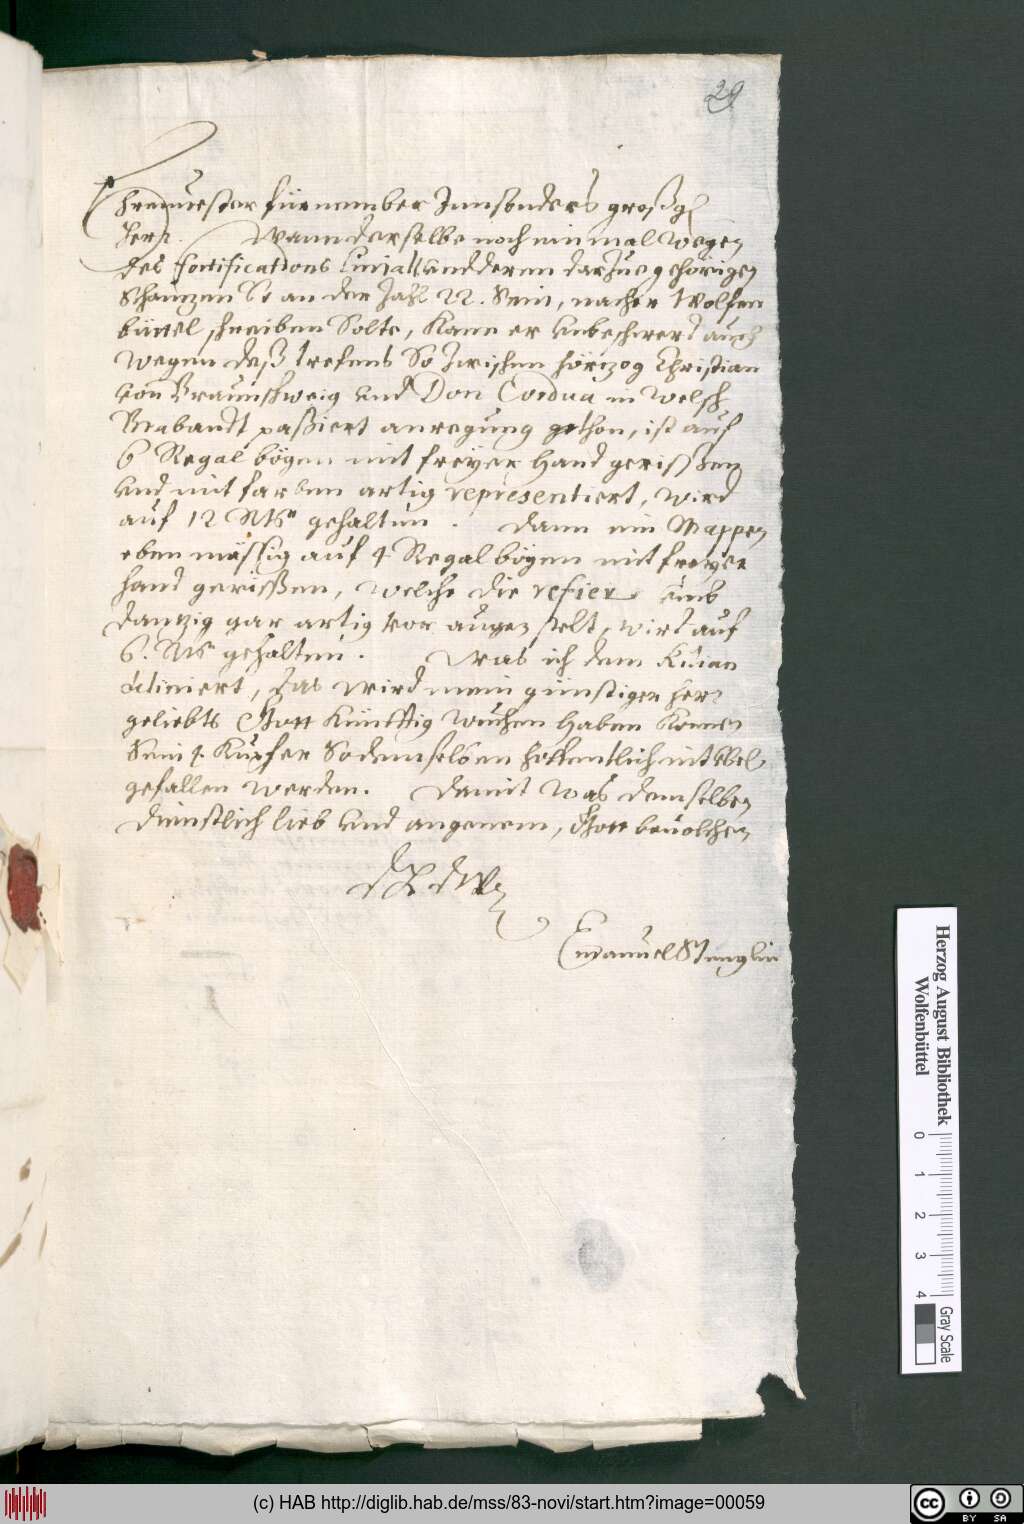 29
Ehrenuester fürnember Innsonders großg
Herr. Wann derselbe noch ein mal wegen
des fortifications Linials und deren darzue gehörigen
Schanzen So an der Zahl 22. Sein, nacher Wolfen
büttel schreiben Solte, kann er unbeschwert auch
wegen deß trefens So Zwischen Hörtzog Christian
von Braunschweig und Don Cordua in Welsch
Brabandt passiert anregung gethon, ist auf
6 Regal bögen mit freyer hand gerissen
und mit farben artig representiert, wird
auf 12 Rts gehalten. Dann ein Mappen
eben mässig auf 4 Regal bögen mit freyer
hand gerissen, welche die refier umb
Dantzig gar artig vor augen stelt, wird auf
6. Rts gehalten. Was ich dem
deliniert, das wird mein günstiger herr
geliebts Gott künfftig wuchen haben können
Sein 4. Kupfer So demselben hoffentlich mit Wol
gefallen werden. Damit was demselben
dienstlich lieb und angenem, Gott beuolchen
Emanuel Stenglin
Herzog August Bibliothek
Wolfenbüttel
0 1 2 3 4
Gray Scale
(c) HAB http://diglib.hab.de/mss/83-novi/start.htm?image=00059
cc BY SA